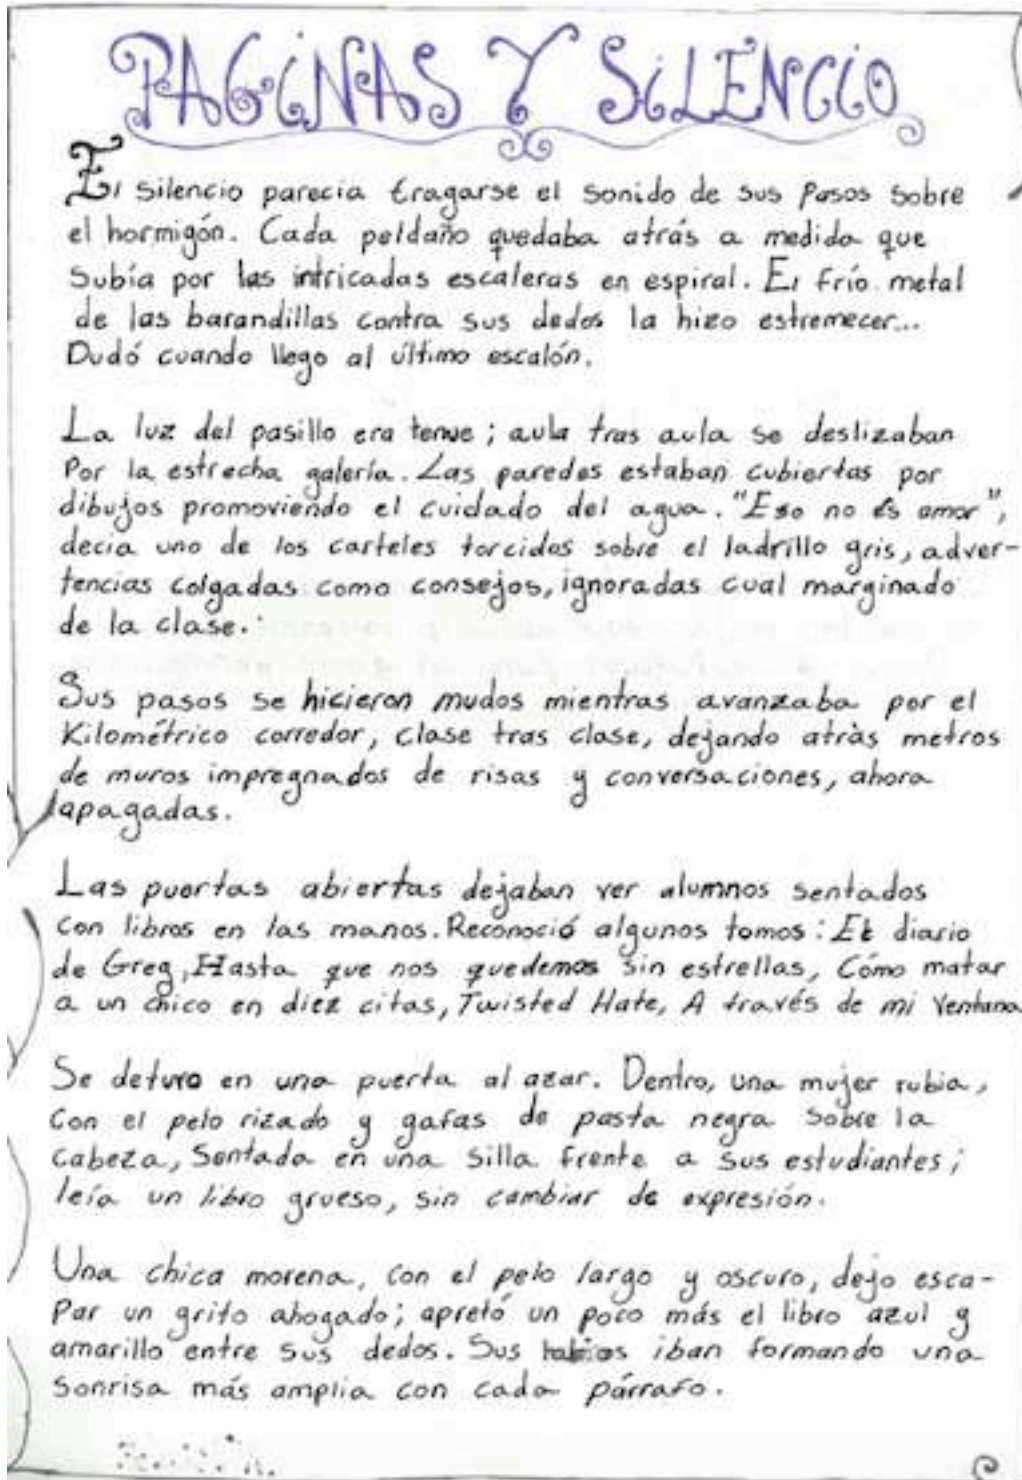 PAGINAS Y SILENCIO
El silencio parecia tragarse el sonido de sus pasos sobre
el hormigón. Cada peldaño quedaba atrás a medida que
subía por las intricadas escaleras en espiral. El frío metal
de las barandillas contra sus dedos la hizo estremecer...
Dudó cuando llego al último escalón.
La luz del pasillo era tenue; aula tras aula se deslizaban
por la estrecha galería. Las paredes estaban cubiertas por
dibujos promoviendo el cuidado del agua. "Eso no es amor",
decia uno de los carteles torcidos sobre el ladrillo gris, adver-
tencias colgadas como consejos, ignoradas cual marginado
de la clase.
Sus pasos se hicieron mudos mientras avanzaba por el
Kilométrico corredor, clase tras clase, dejando atràs metros
de muros impregnados de risas y conversaciones, ahora
apagadas.
Las puertas abiertas dejaban ver alumnos sentados
con libros en las manos. Reconoció algunos tomos: El diario
de Greg, Hasta que nos quedemos sin estrellas, Cómo matar
a un chico en diez citas, Twisted Hate, A través de mi Ventana
Se detuvo en una puerta al azar. Dentro, una mujer rubia,
con el pelo rizado y gafas de pasta negra sobre la
cabeza, sentada en una silla frente a sus estudiantes;
leía un libro grueso, sin cambiar de expresión.
Una chica morena, con el pelo largo y oscuro, dejo esca-
par un grito ahogado; apretó un poco más el libro azul y
amarillo entre sus dedos. Sus labios iban formando una
sonrisa más amplia con cada párrafo.